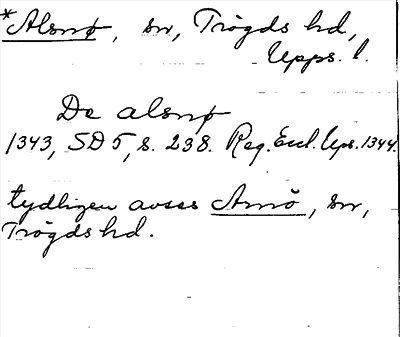 *Alsnø, sn, Trögds hd,
Upps. l.
De alsnø
1343, SD 5, s. 238. Reg. Eccl. Ups. 1344.
tydligen avses Arnö, sn,
Trögds hd.